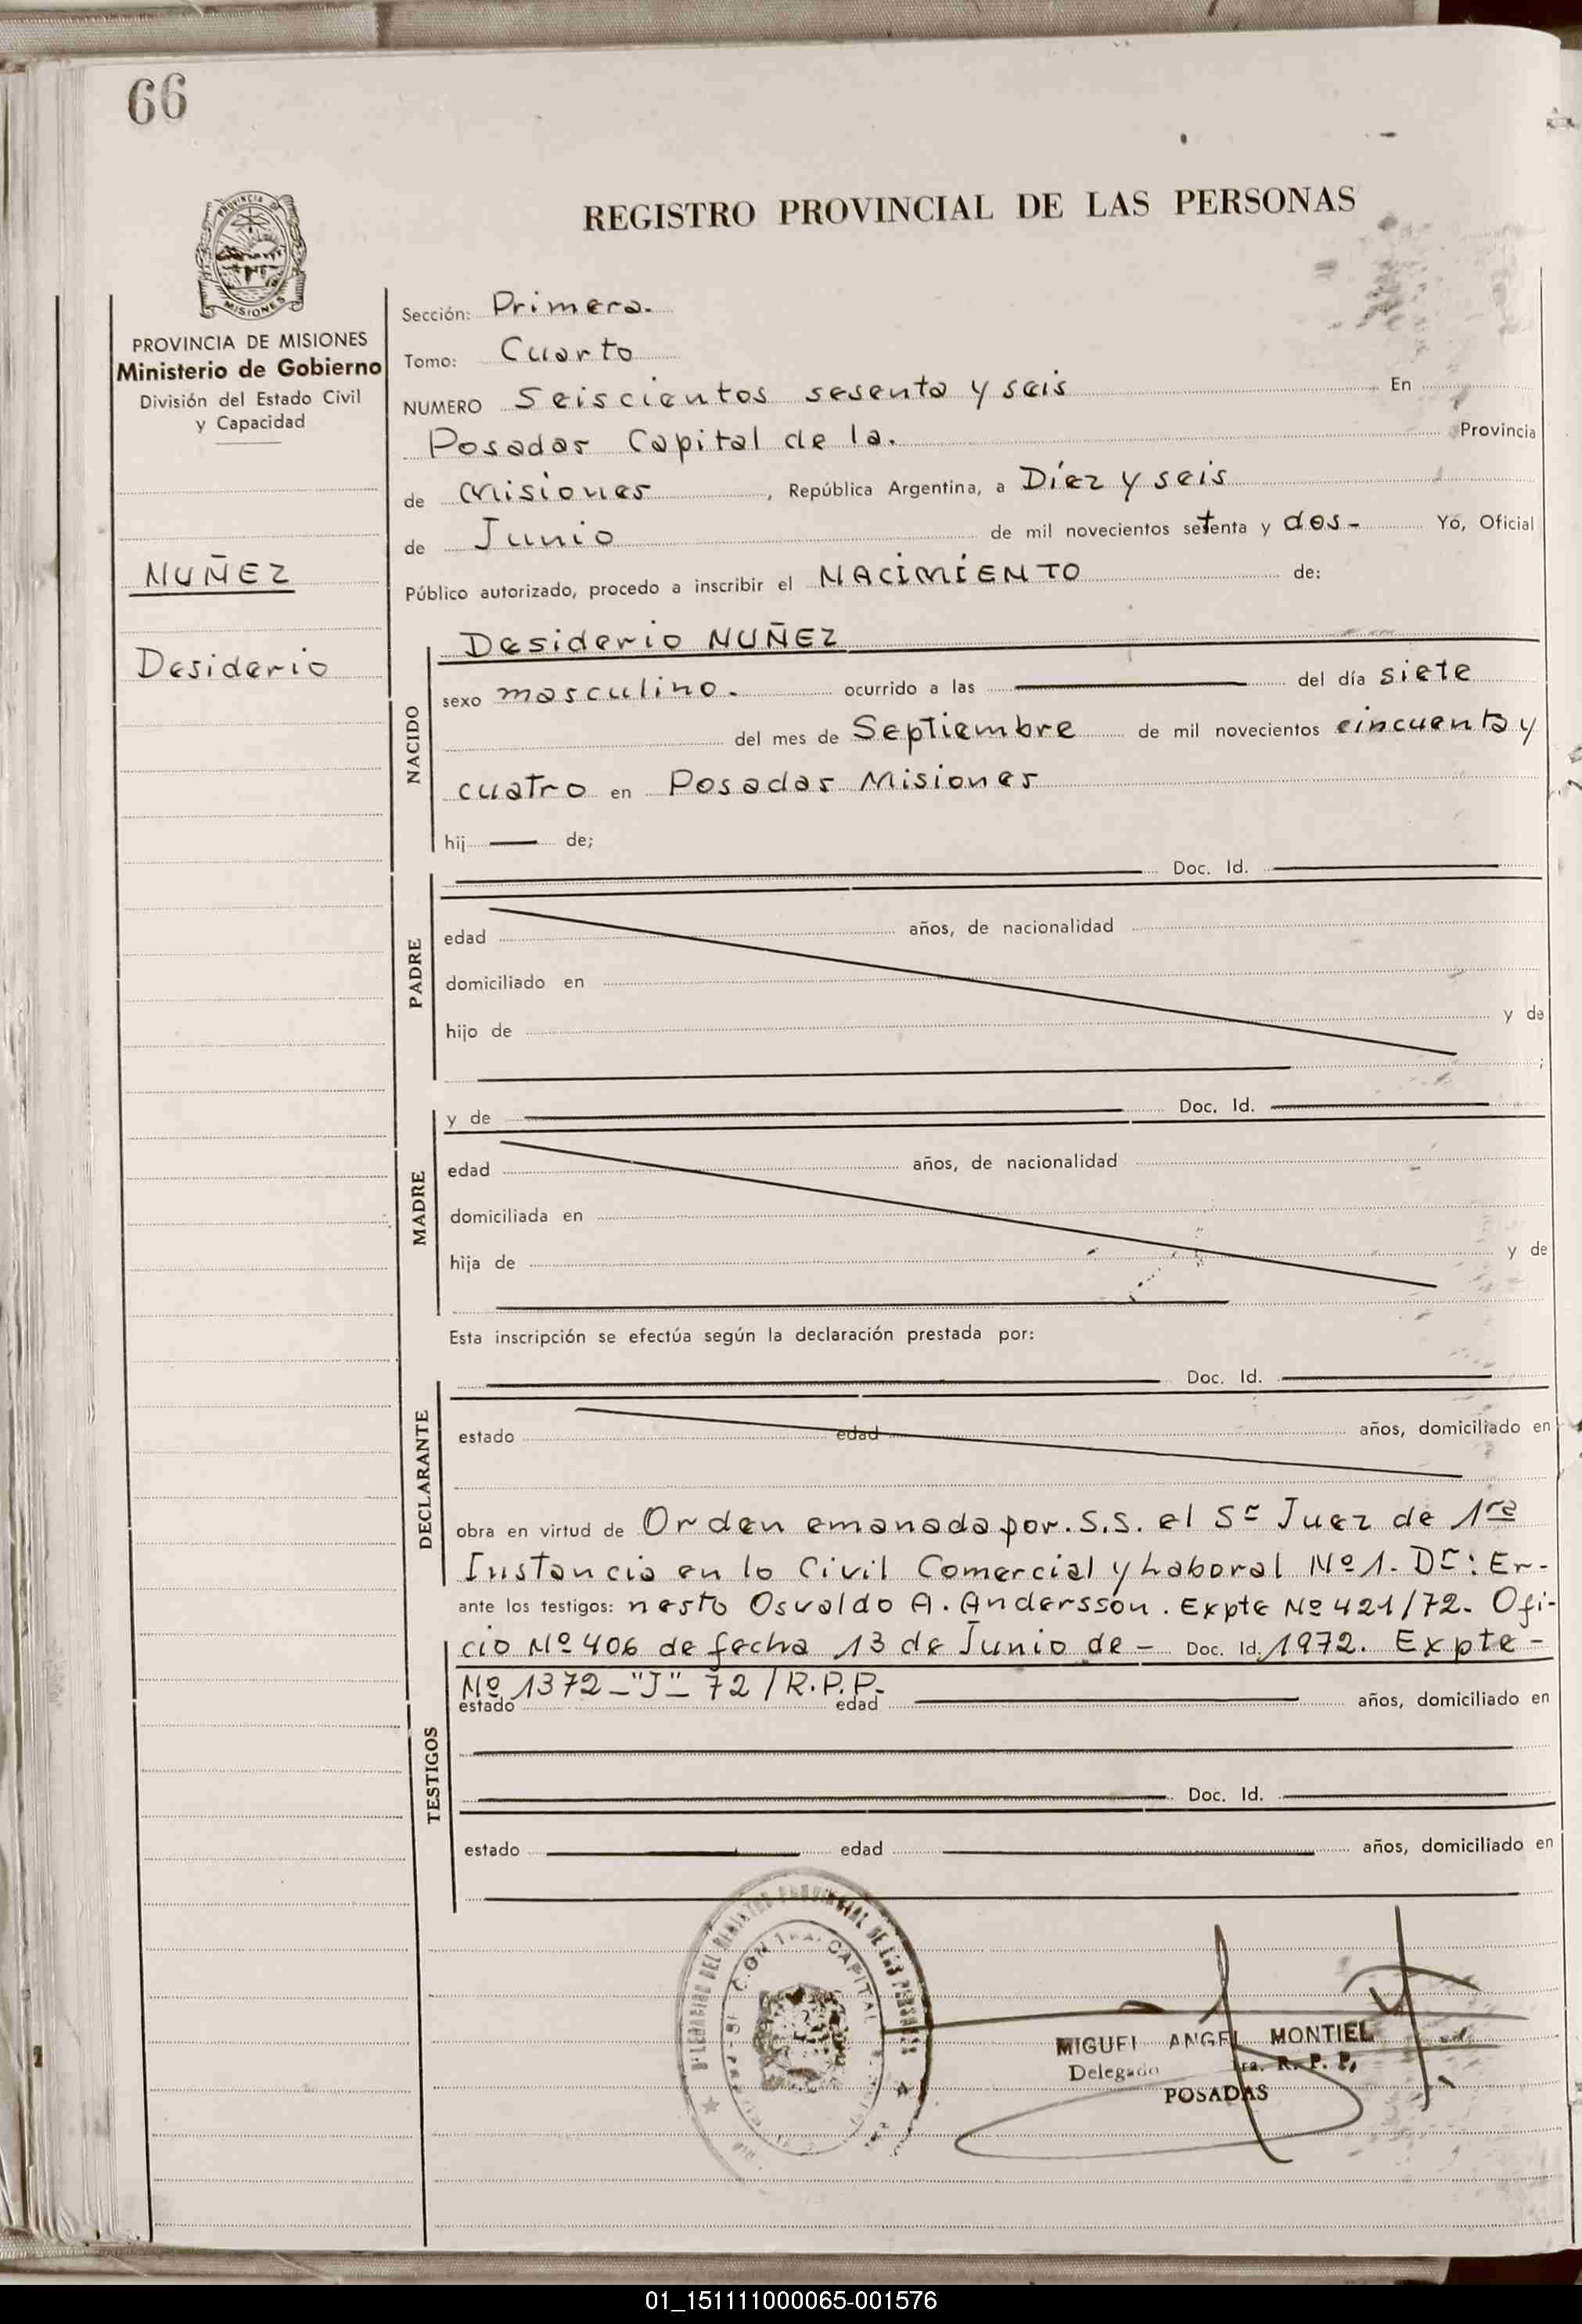 66
REGISTRO PROVINCIAL DE LAS PERSONAS
PROVINCIA DE MISIONES
Ministerio de Gobierno
División del Estado Civil
y Capacidad
NUÑEZ
Desiderio
Sección: Primera.
Tomo: Cuarto
NUMERO Seiscientos sesenta y seis En
Posadas Capital de la. Provincia
de Misiones, República Argentina, a Diez y seis
de Junio de mil novecientos setenta y dos- Yo, Oficial
Público autorizado, procedo a inscribir el NACIMIENTO de:
NACIDO
Desiderio NUÑEZ
sexo masculino. ocurrido a las del día siete
del mes de Septiembre de mil novecientos cincuenta y
cuatro en Posadas Misiones
hij de;
PADRE
Doc. Id.
edad años, de nacionalidad
domiciliado en
hijo de y de
;
MADRE
y de Doc. Id.
edad años, de nacionalidad
domiciliada en
hija de y de
Esta inscripción se efectúa según la declaración prestada por:
DECLARANTE
Doc. Id.
estado edad años, domiciliado en
obra en virtud de Orden emanada por. S.S. el Sr Juez de 1ra
Instancia en lo Civil Comercial y Laboral Nº 1. Dr: Er-
ante los testigos: nesto Osvaldo A. Andersson. Expte Nº 421/72. Ofi-
cio Nº 406 de fecha 13 de Junio de - Doc. Id. 1972. Expte-
Nº 1372-"J"- 72/R.P.P.
TESTIGOS
estado edad años, domiciliado en
Doc. Id.
estado edad años, domiciliado en
DELEGACION DEL REGISTRO PROVINCIAL DE LAS PERSONAS
CAPITAL
MIGUEL ANGEL MONTIEL
Delegado 1ra. R. P. P.
POSADAS
01_151111000065-001576